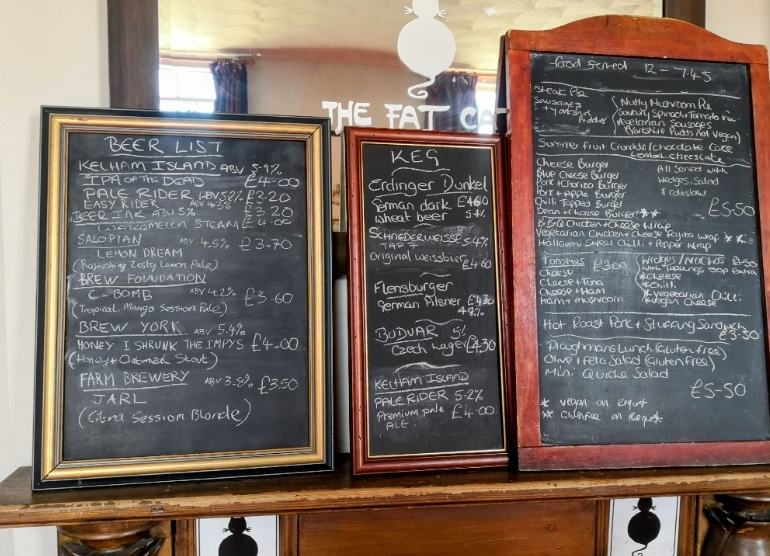 THE FAT CA
BEER LIST
KELHAM ISLAND ABV 5.9%
IPA OF THE DEAD £4-00
PALE RIDER ABV 5.2% £3.20
EASY RIDER
BEER INK ABV 5% £3.20
STEAM £4-00
SALOPIAN ABV 4.5% £3.70
LEMON DREAM
(Refreshing Zesty Lemon Pale)
BREW FOUNDATION
C-BOMB ABV 4.2% £3-60
(Tropical Mango Session Pale)
BREW YORK ABV 5.4%
HONEY I SHRUNK THE IMPYS £4-00
(Honey + Oatmeal Stout)
FARM BREWERY ABV 3.8% £3.50
JARL
(Citra Session Blonde)
KEG
Erdinger Dunkel
German dark £4.60
wheat beer
SCHNEIDERWEISSE
TAP 7 5.4%
Original weissbier £4.60
Flensburger
German Pilsner
4.8%
BUDVAR 5%
Czech Lager £4.30
KELHAM ISLAND
PALE RIDER 5.2%
Premium pale £4.00
ALE
Food Served 12 - 7.45
Steak Pie
Sausages
+ Yorkshire
Pudding
Nutty Mushroom Pie
Spinach + Tomato Pie
Vegetarian Sausages
(Yorkshire Pudds Not Vegan)
Summer fruit Crumble/chocolate Cake
Lemon cheesecake
Cheese Burger
Blue Cheese Burger
Pork + Chorizo Burger
Pork + Apple Burger
Chilli Topped Burger
Bean + Cheese Burger **
All Served with
Wedges, Salad
+ coleslaw
£5-50
BBQ Chicken + Cheese Wrap
Vegetarian Chicken + Cheese Fajita Wrap **
Halloumi Sweet Chilli + Pepper Wrap
Toasties £3.00
Cheese
Cheese + Tuna
Cheese + Ham
Ham + mushroom
Wedges/Nachos
with Toppings 50p Extra
*Cheese
*Chilli
*Vegetarian Chilli
*Vegan Cheese
Hot Roast Pork + Stuffing Sandwich
£3-50
Ploughmans Lunch (Gluten free)
Olive + Feta Salad (Gluten Free)
Mini Quiche Salad
£5-50
* vegan on request
** Gluten free on Request